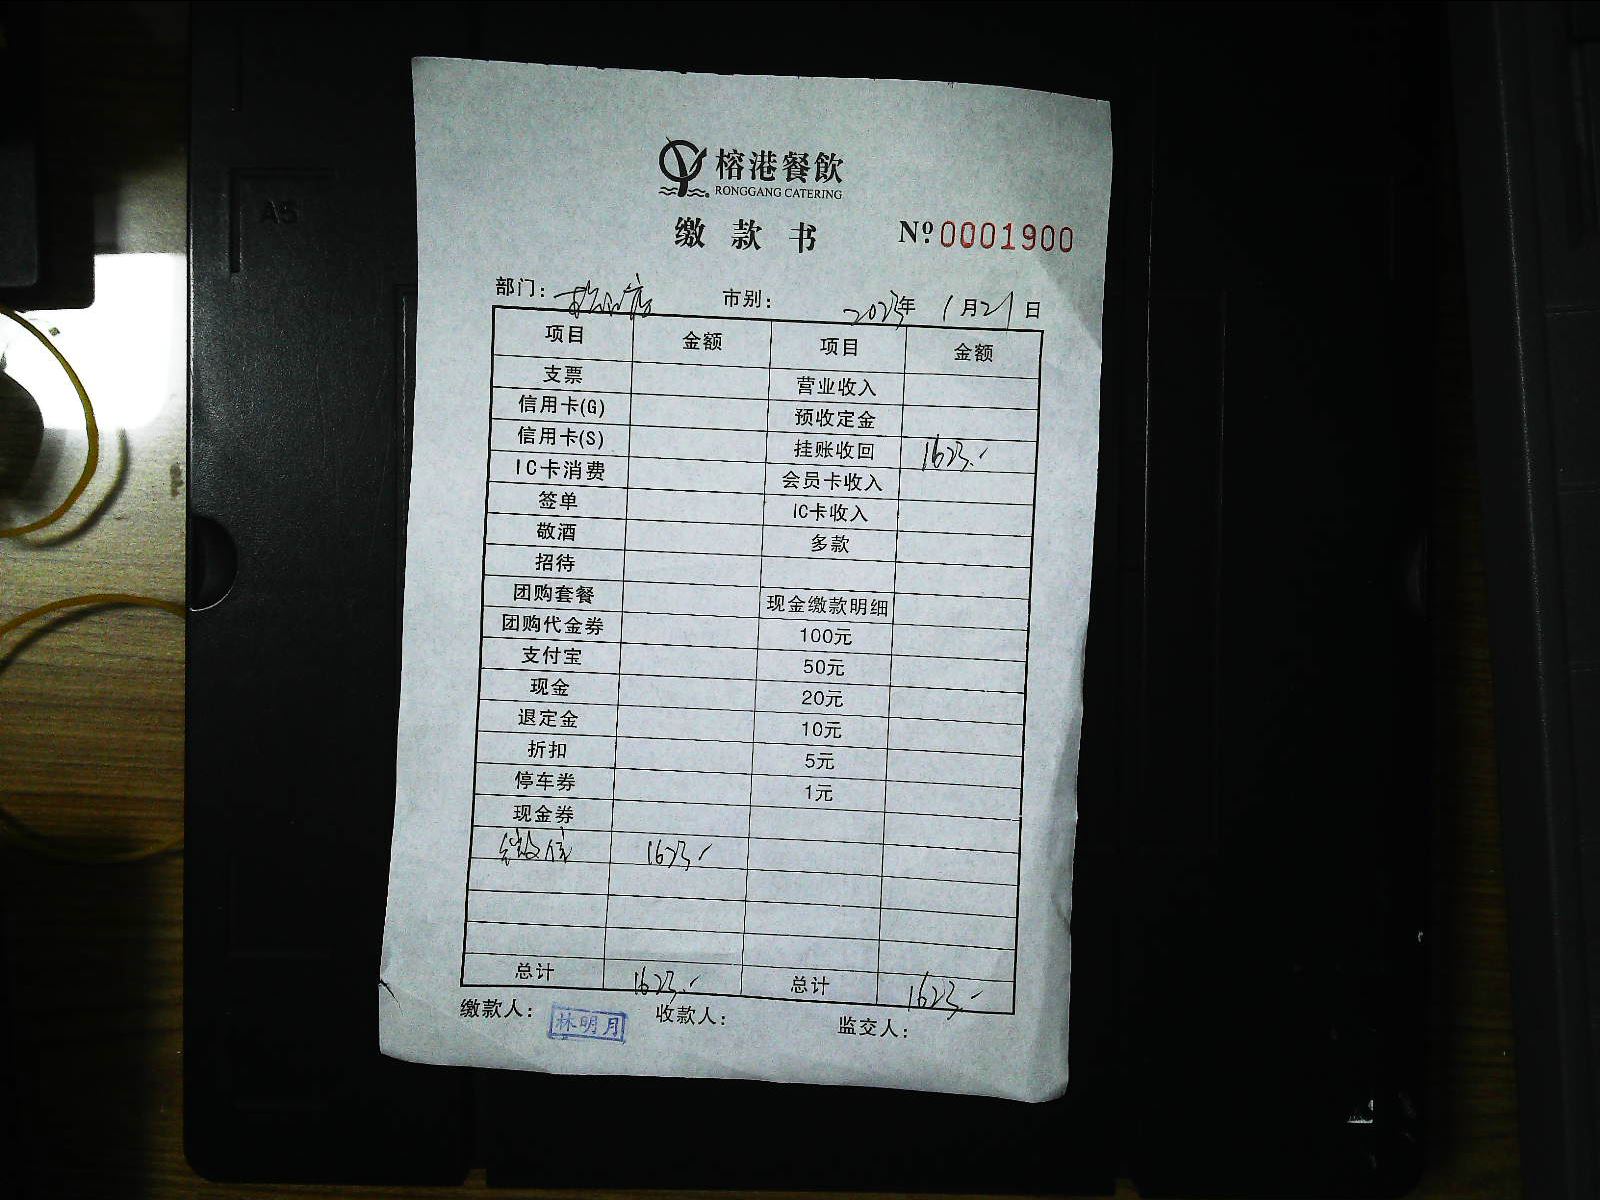 A5
榕港餐飲
RONGGANG CATERING
缴款书 Nº 0001900
部门: 市别: 2023年 1月21日
项目 金额 项目 金额
支票 营业收入
信用卡(G) 预收定金
信用卡(S) 挂账收回 1623.-
IC卡消费 会员卡收入
签单 IC卡收入
敬酒 多款
招待
团购套餐 现金缴款明细
团购代金券 100元
支付宝 50元
现金 20元
退定金 10元
折扣 5元
停车券 1元
现金券
微信 1623.-
总计 1623.- 总计 1623.-
缴款人: 林明月 收款人: 监交人: